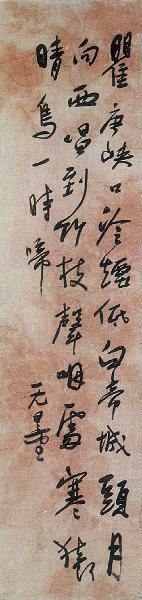 瞿唐峡口冷煙低白帝城頭月
向西唱到竹枝聲咽處寒猿
晴鳥一時啼